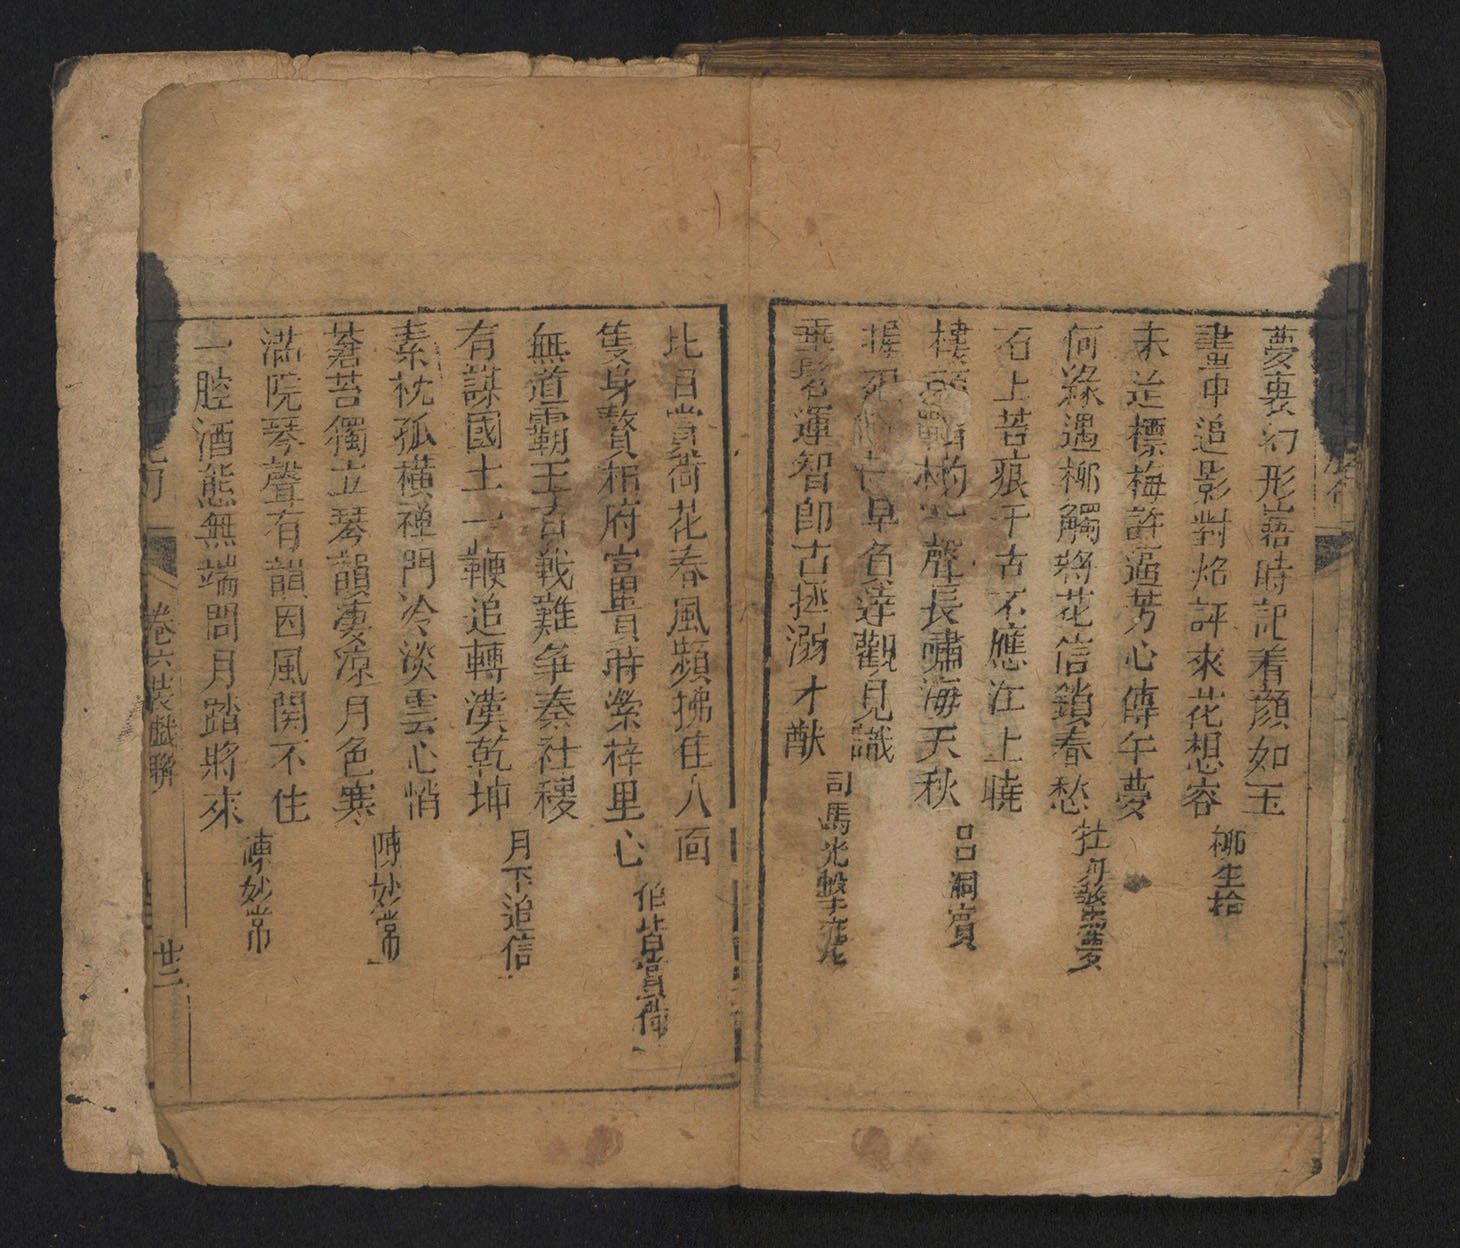 夢裏幻形寤時記着顔如玉
畫中追影對焰評來花想容
柳生拾
未迨標梅許逗芳心傳午夢
何緣遇柳觸將花信鎖春愁
牡丹驚夢
石上苔痕千古不應江上曉
樓頭 杓一聲長嘯海天秋
呂洞賓
握 早負達觀見識
垂髫運智即古拯溺才猷
司馬光擊甕
此日賞荷花春風頻拂住人面
隻身贅相府富貴 縈梓里心
伯喈賞荷
無道霸王百戰難争秦社稷
有謀國士一鞭追轉漢乾坤
月下追信
素枕孤横禪門冷淡雲心悄
蒼苔獨立琴韻凄凉月色寒
陳妙常
滿院琴聲有韻因風関不住
一腔酒態無端問月踏將來
陳妙常
卷六裝戲聯
廿二